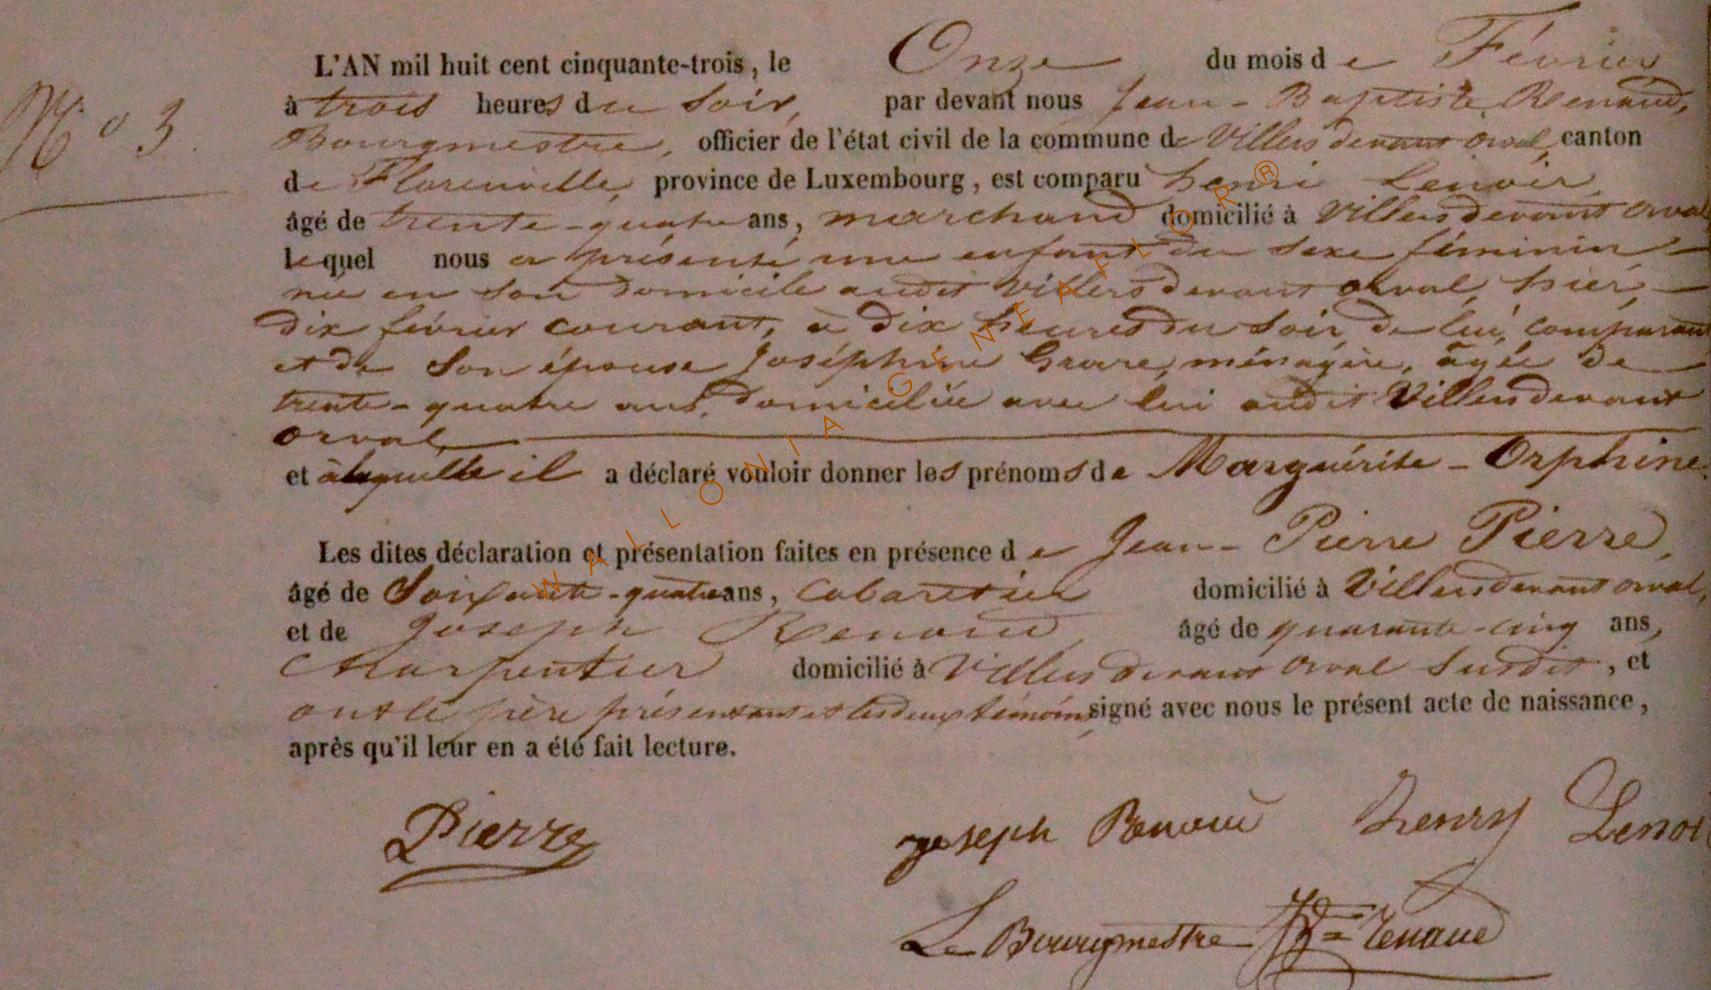 L'AN mil huit cent cinquante-trois, le Onze du mois de Février
à trois heures du soir, par devant nous Jean-Baptiste Renaud,
N° 3.
Bourgmestre, officier de l'état civil de la commune de Villers devant orval, canton
de Florenville, province de Luxembourg, est comparu henri Lenoir,
âgé de trente-quatre ans, marchand domicilié à Villers devant orval
lequel nous a présenté une enfant du sexe féminin
née en son domicile audit Villers devant orval, hier,
dix février courant, à dix heures du soir, de lui, comparant
et de son épouse Joséphine ménagère, âgée de
trente-quatre ans, domiciliée avec lui audit Villers devant
orval
et à laquelle il a déclaré vouloir donner les prénoms de Marguérite-Orphine.
Les dites déclaration et présentation faites en présence de Jean-Pierre Pierre,
âgé de Soixante-quatre ans, Cabaretier domicilié à Villers devant orval,
et de Joseph Renaud, âgé de quarante-cinq ans,
Charpentier domicilié à Villers devant orval susdit, et
ont le père présentant et les deux témoins, signé avec nous le présent acte de naissance,
après qu'il leur en a été fait lecture.
Pierre Joseph Renaud henry Lenoi
Le Bourgmestre Renaud
WALLONIA GENEAFLOR®